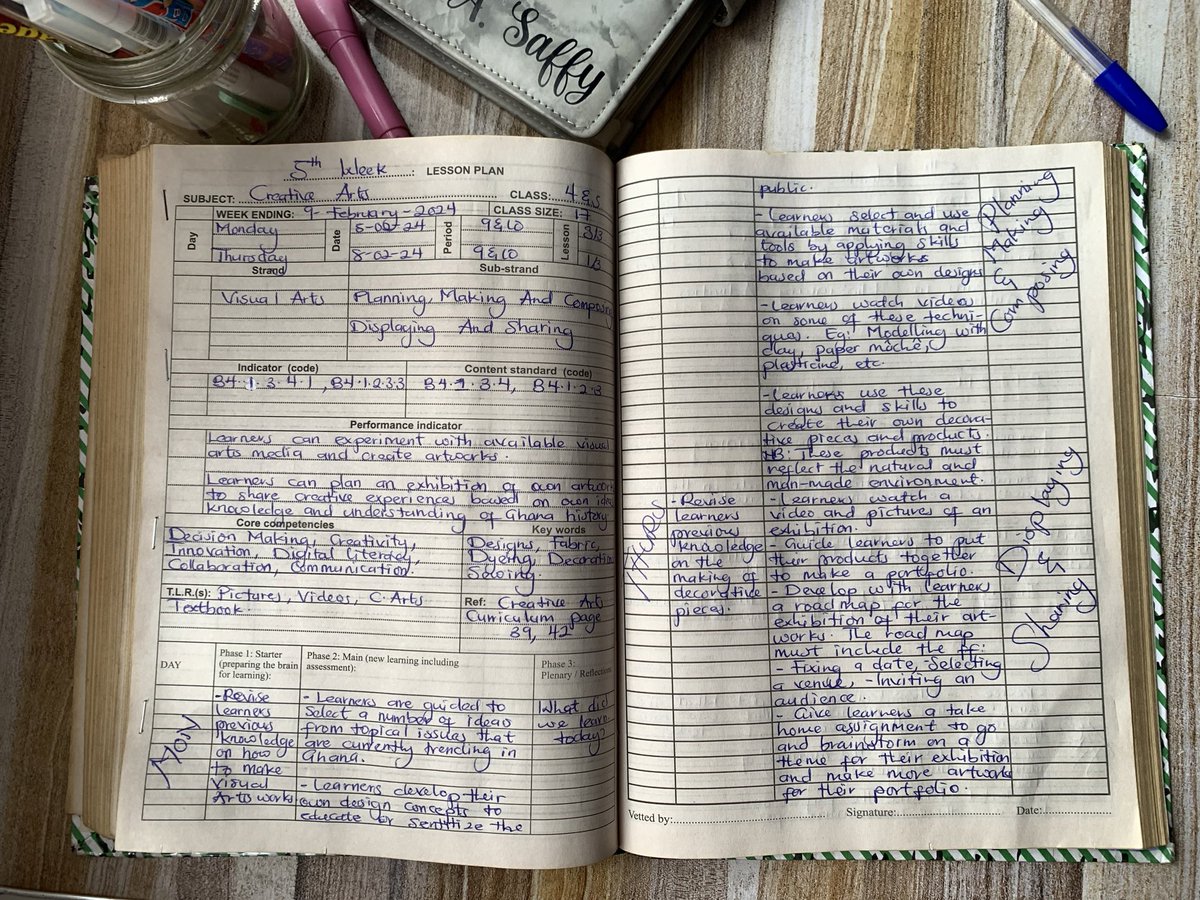 A. Saffy
5th Week : LESSON PLAN
SUBJECT: Creative Arts CLASS: 4 & 5
WEEK ENDING: 9-February-2024 CLASS SIZE: 17
Day Monday Date 5-02-24 Period 9&10 Lesson 3/3
Thursday 8-02-24 9&10 1/3
Strand Sub-strand
Visual Arts Planning, Making And Composing
Displaying And Sharing
Indicator (code) Content standard (code)
B4.1.3.4.1, B4.1.2.3.3 B4.1.3.4, B4.1.2.3
Performance indicator
Learners can experiment with available visual
arts media and create artworks.
Learners can plan an exhibition of own artwork
to share creative experiences based on own idea
knowledge and understanding of Ghana history
Core competencies Key words
Decision Making, Creativity, Designs, fabric,
Innovation, Digital Literal, Dyeing, Decoration
Collaboration, Communication. Sewing.
T.L.R.(s): Pictures, Videos, C. Arts Ref: Creative Arts
Textbook. Curriculum page
39, 42
DAY Phase 1: Starter Phase 2: Main (new learning including Phase 3:
(preparing the brain assessment): Plenary / Reflections
for learning):
MON
-Revise - Learners are guided to What did
learners select a number of ideas we learn
previous from topical issues that today?
knowledge are currently trending in
on how Ghana.
to make
Visual - Learners develop their
Arts works. own design concepts to
educate or sensitize the
public.
- Learners select and use
available materials and
tools by applying skills
to make artworks
based on their own designs
Planning
Making
&
Composing
-Learners watch videos
on some of these techni-
ques. Eg: Modelling with
clay, paper mâché,
plasticine, etc.
-Learners use these
designs and skills to
create their own decora-
tive pieces and products.
NB: These products must
reflect the natural and
man-made environment.
THURS
-Revise - Learners watch a
learners video and pictures of an
previous exhibition.
knowledge - Guide learners to put
on the their products together
making of to make a portfolio.
decorative - Develop with learners
pieces. a roadmap for the
exhibition of their art-
works. The road map
must include the ff:
- Fixing a date, Selecting
a venue, - Inviting an
audience.
- Give learners a take
home assignment to go
and brainstorm on a
theme for their exhibition
and make more artworks
for their portfolio.
Displaying
&
Sharing
Vetted by: Signature: Date: